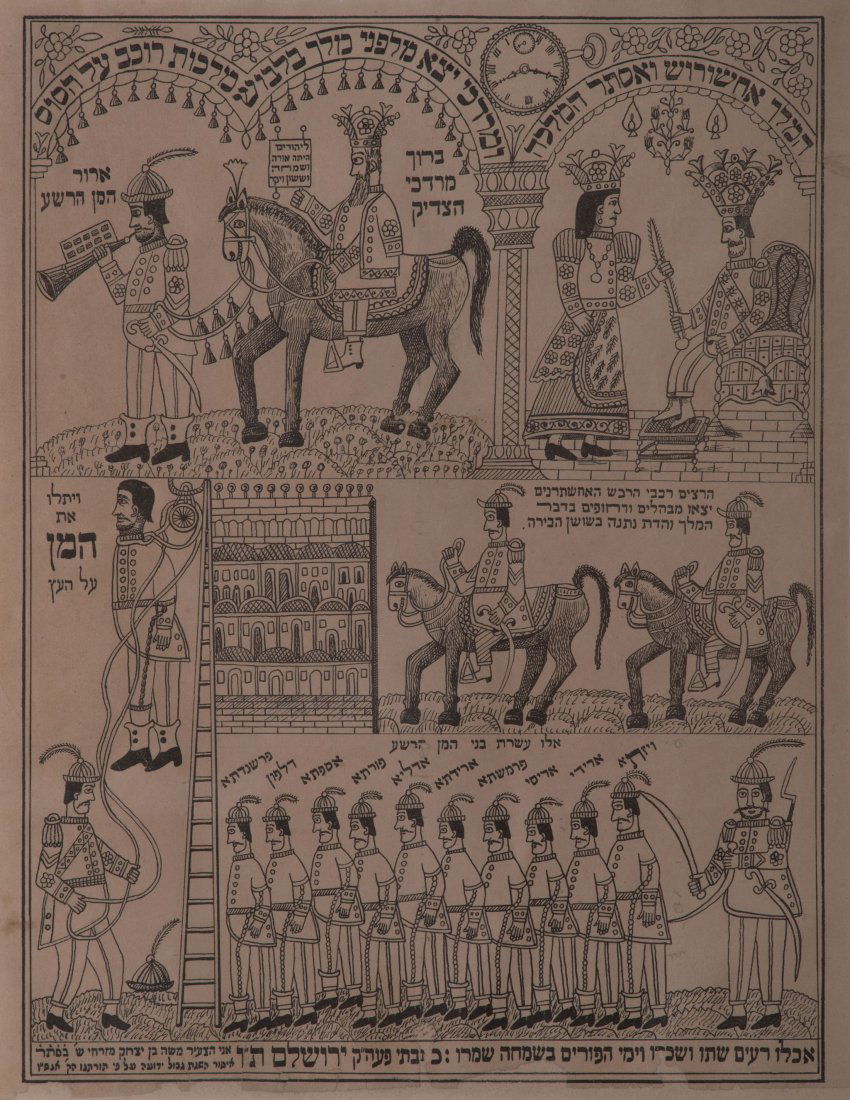 המלך אחשורוש ואסתר המלכה
ומרדכי יצא מלפני מלך בלבוש מלכות רוכב על הסוס
ליהודים
היתה אורה
ושמחה
וששון ויקר
ברוך
מרדכי
הצדיק
ארור
המן הרשע
הרצים רכבי הרכש האחשתרנים
יצאו מבהלים ודחופים בדבר
המלך והדת נתנה בשושן הבירה.
ויתלו
את
המן
על העץ
אלו עשרת בני המן הרשע
ויזתא ארידי אריסי פרמשתא ארידתא אדליא פורתא אספתא דלפון פרשנדתא
אכלו רעים שתו ושכרו וימי הפורים בשמחה שמרו : כ נבתי פעה״ק ירושלם ת״ו
אני הצעיר משה בן יצחק מזרחי